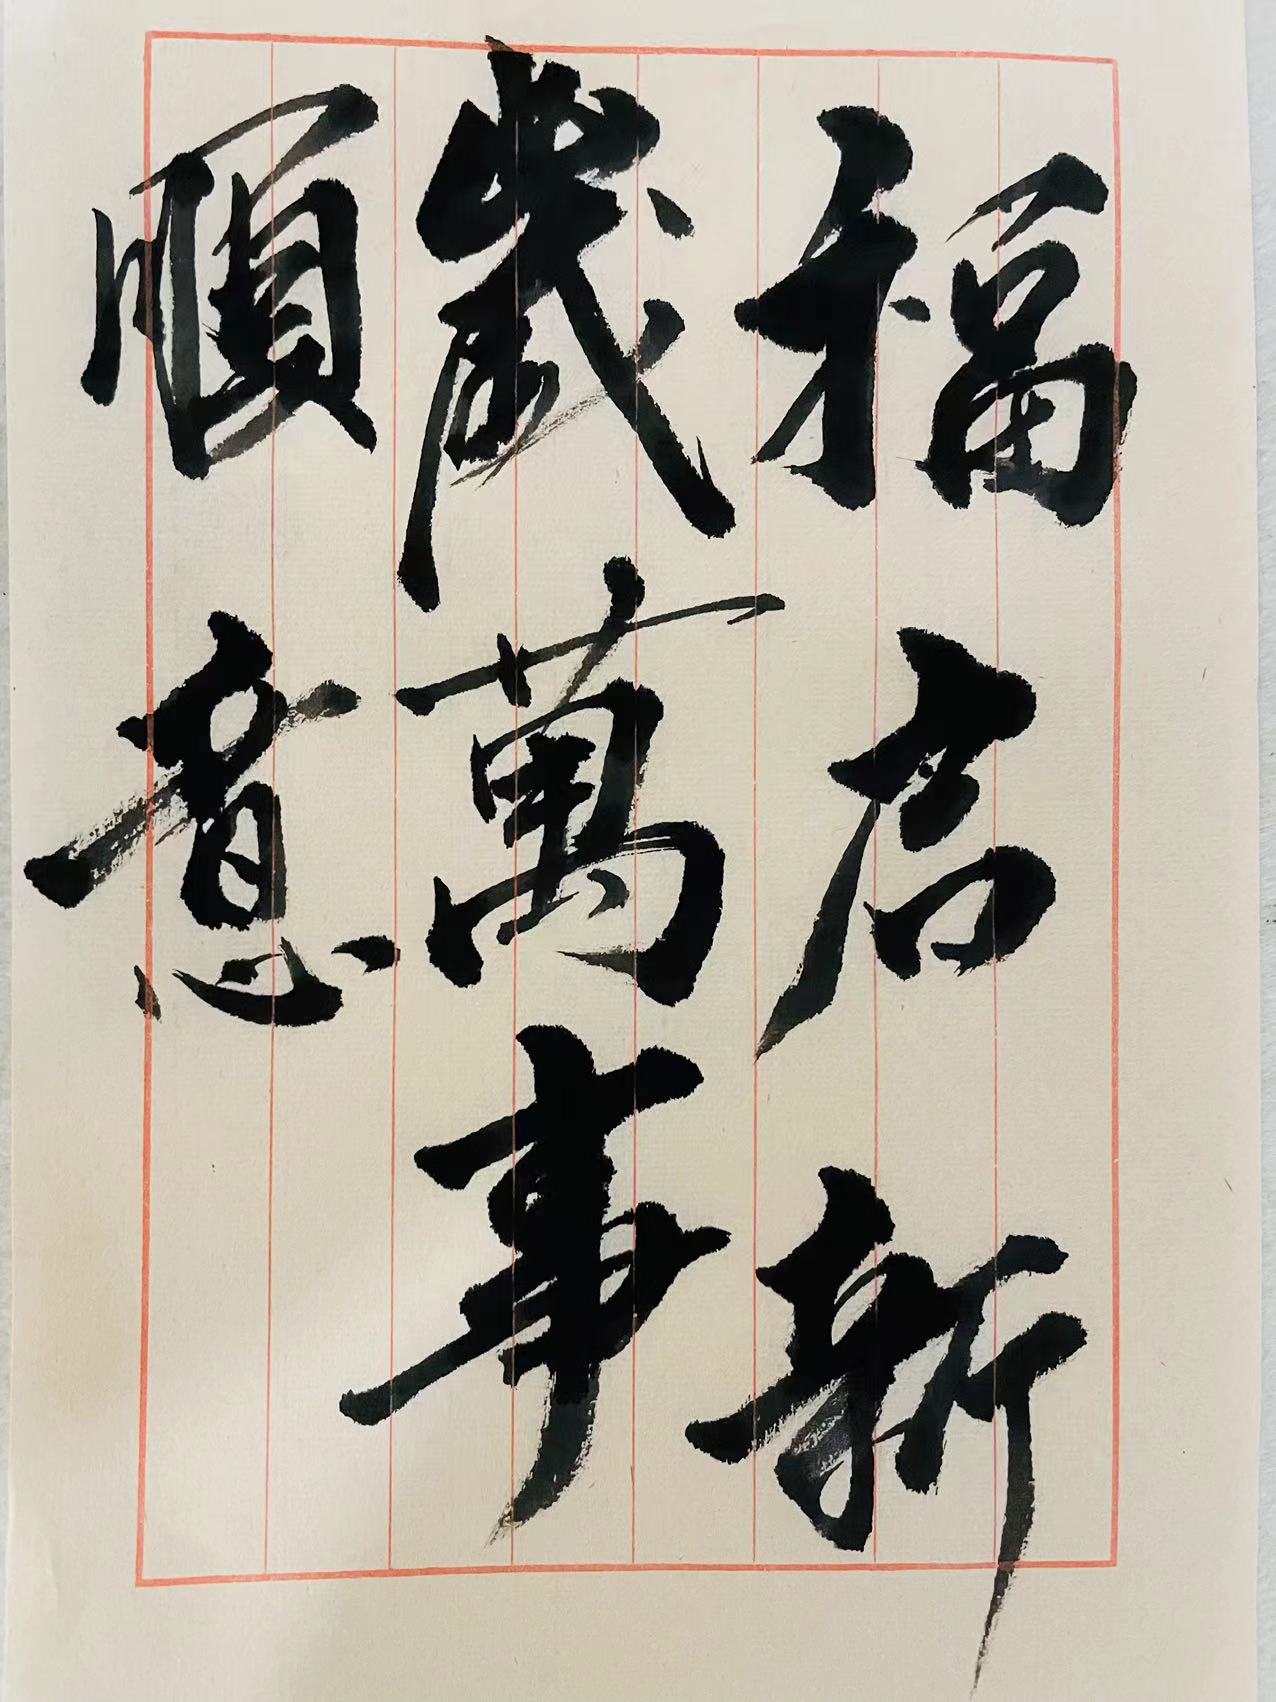 福启新
歲萬事
順意